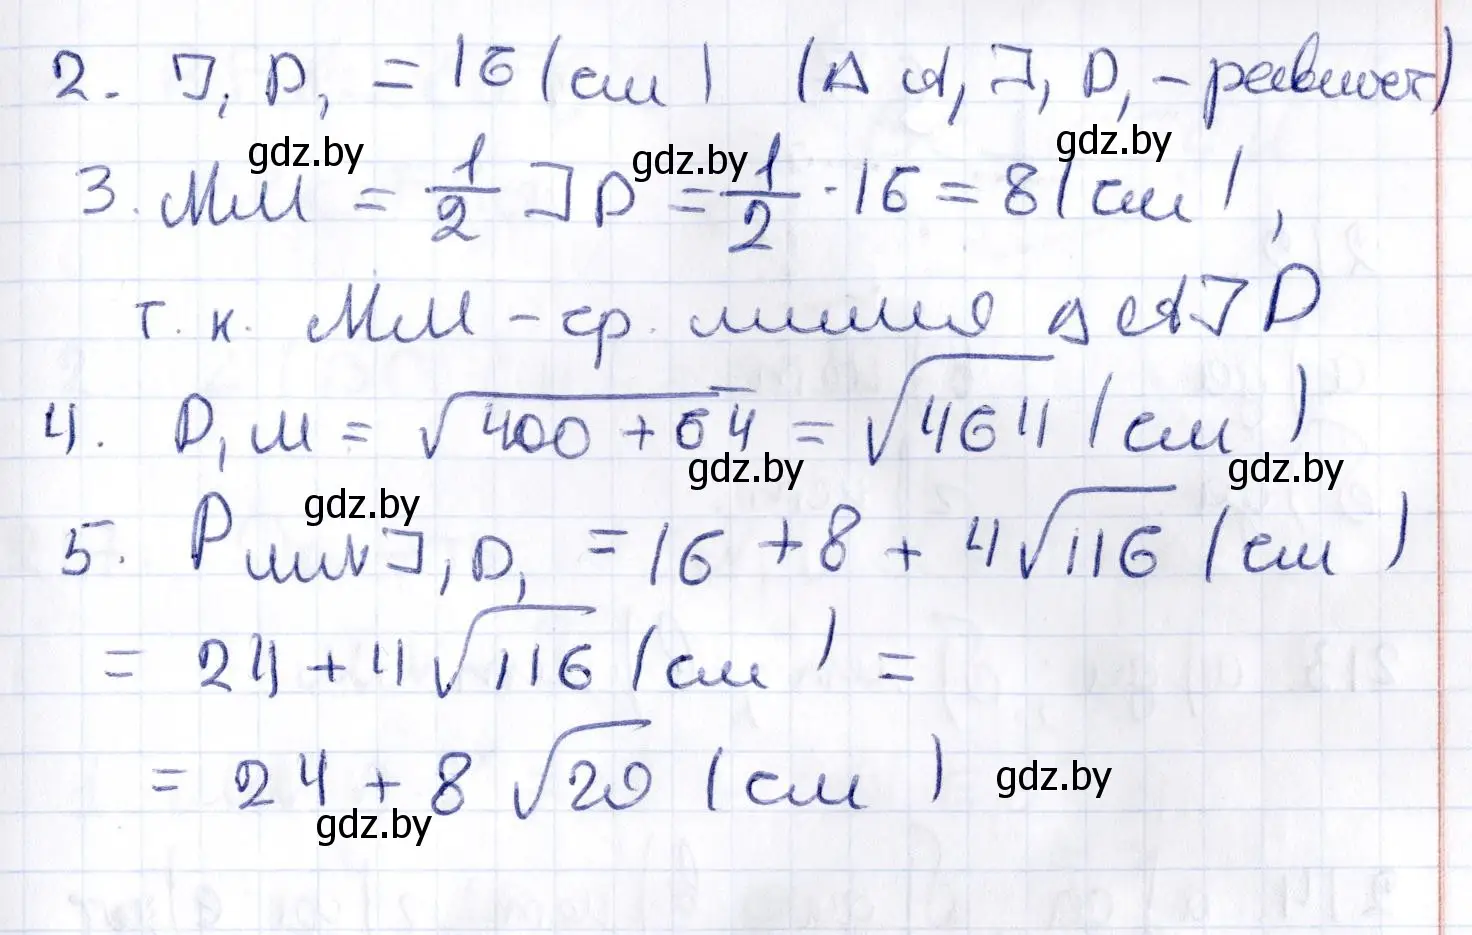 2. J₁D₁ = 16 (см) (Δ A₁J₁D₁ –
gdz.by gdz.by gdz.by
3. MN = 1/2 JD = 1/2 · 16 = 8 (см),
т. к. MN – ср. линия Δ AJD
4. D₁M = √400 + 64 = √464 (см)
gdz.by gdz.by
gdz.by
5. P J₁D₁ = 16 + 8 + 4√116 (см)
= 24 + 4√116 (см) =
= 24 + 8 √20 (см)
gdz.by
gdz.by